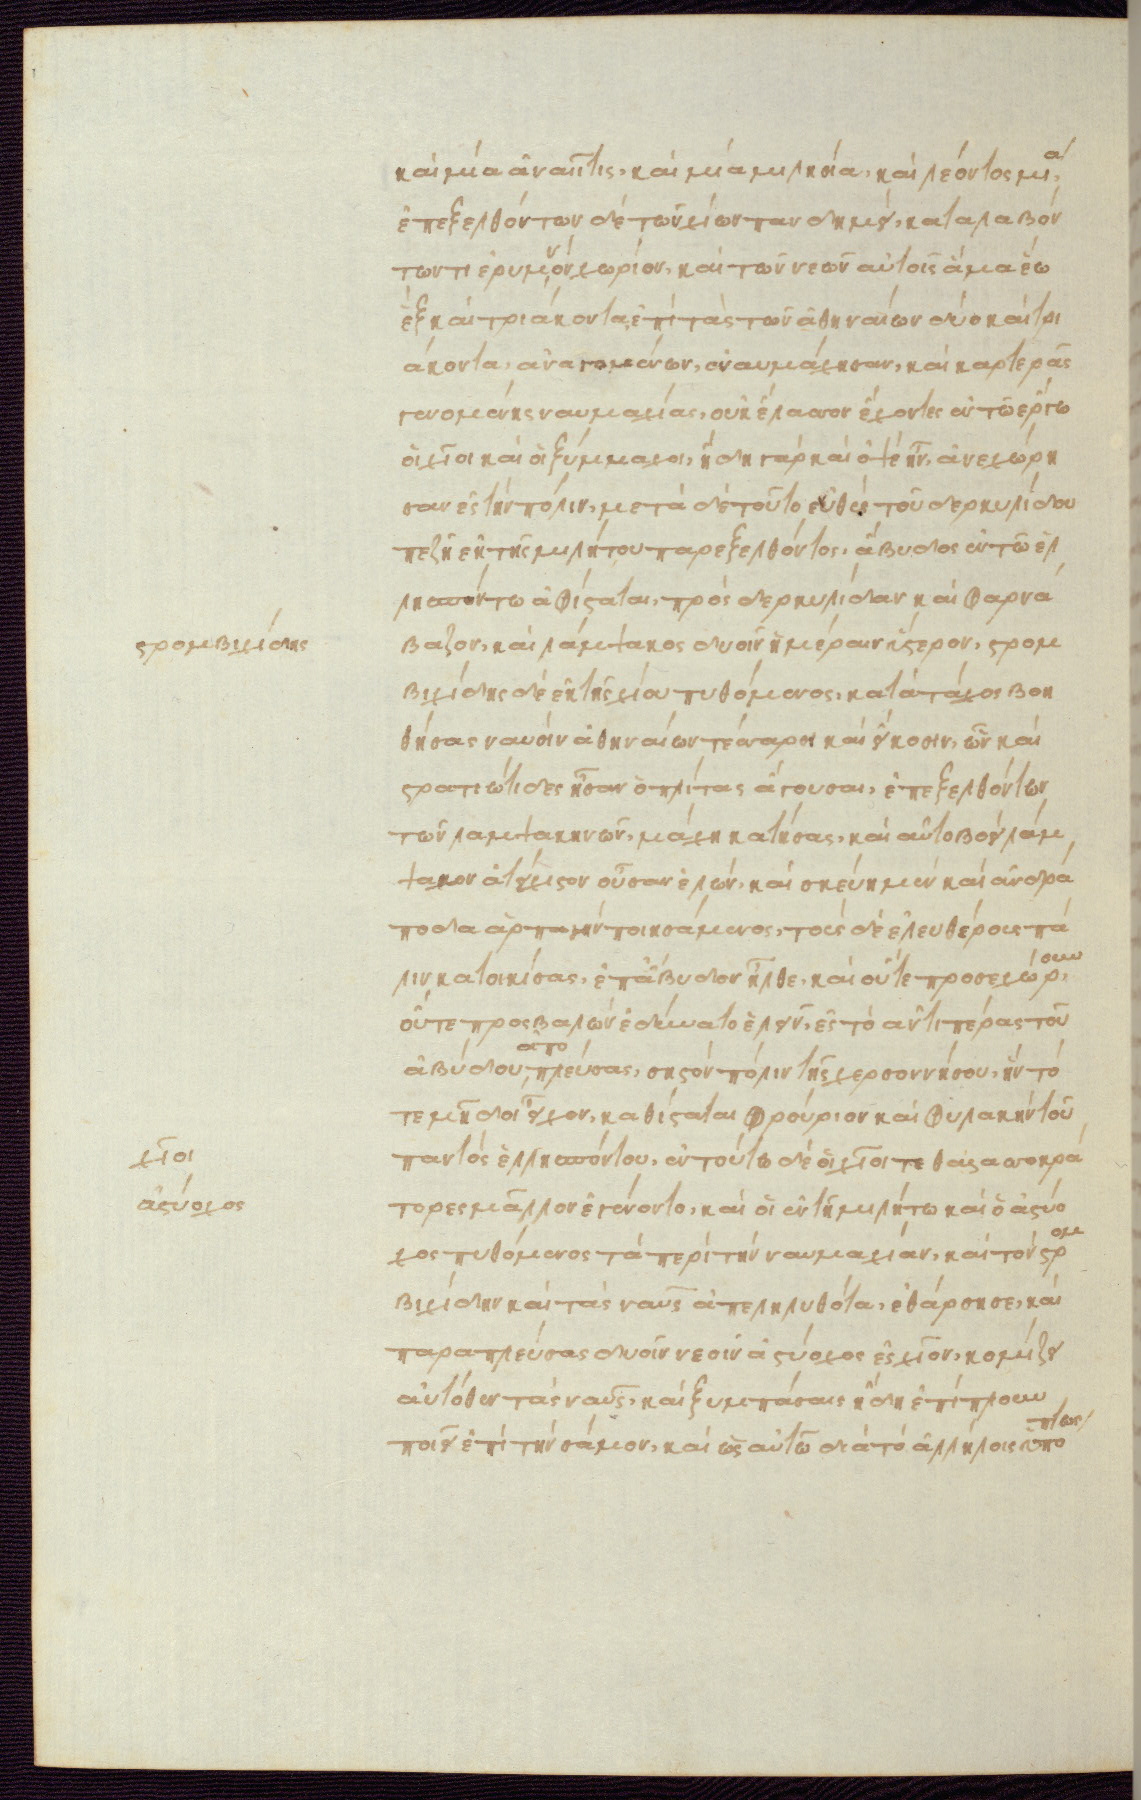 καὶ μία ἀναιΐτις, καὶ μία μιλησία, καὶ λέοντος μία,
ἐπεξελθόντων δὲ τῶν χίων πανδημεὶ, καταλαβόν
των τι ἐρυμνὸν χωρίον, καὶ τῶν νεῶν αὐτοῖς ἅμα ἕω
ἓξ καὶ τριάκοντα ἐπὶ τὰς τῶν ἀθηναίων δύο καὶ τρι
άκοντα, ἀναγομένων, ἐναυμάχησαν, καὶ καρτερᾶς
γενομένης ναυμαχίας, οὐκ ἔλασσον ἔχοντες ἐν τῶ ἔργω
οἱ χῖοι καὶ οἱ ξύμμαχοι, ἤδη γὰρ καὶ ὀψὲ ἦν, ἀνεχώρη
σαν ἐς τὴν πόλιν, μετὰ δὲ τοῦτο εὐθὺς τοῦ δερκυλίδου
πεζῆ ἐκ τῆς μιλήτου παρεξελθόντος, ἄβυδος ἐν τῶ ἑλ
λησπόντω ἀφίσταται, πρὸς δερκυλίδαν καὶ φαρνά
βαζον, καὶ λάμψακος δυοῖν ἡμέραιν ὕστερον, στρομ
στρομβιχίδης
βιχίδης δὲ ἐκ τῆς χίου πυθόμενος, κατὰ τάχος βοη
θήσας ναυσὶν ἀθηναίων τέσσαρσι καὶ εἴκοσιν, ὧν καὶ
στρατιώτιδες ἦσαν ὁπλίτας ἄγουσαι, ἐπεξελθόντων
τῶν λαμψακηνῶν, μάχη κρατήσας, καὶ αὐτοβοεὶ λάμ
ψακον ἀτείχιστον οὖσαν ἑλὼν, καὶ σκεύη μὲν καὶ ἀνδρά
ποδα ἁρπαγὴν ποιησάμενος, τοὺς δὲ ἐλευθέρους πά
λιν κατοικίσας, ἐπ' ἄβυδον ἦλθε, καὶ οὔτε προσεχώρουν,
οὔτε προσβαλὼν ἐδύνατο ἑλεῖν, ἐς τὸ ἀντιπέρας τοῦ
ἀβύδου ἀποπλεύσας, σηστὸν πόλιν τῆς χερσοννήσου, ἣν τό
τε μῆδοι εἶχον, καθίσταται φρούριον καὶ φυλακὴν τοῦ
παντὸς ἑλλησπόντου, ἐν τούτω δὲ οἱ χῖοί τε θαλασσοκρά
χῖοι
τορες μᾶλλον ἐγένοντο, καὶ οἱ ἐν τῆ μιλήτω καὶ ὁ ἀστύο
ἀστύοχος
χος πυθόμενος τὰ περὶ τὴν ναυμαχίαν, καὶ τὸν στρομ
βιχίδην καὶ τὰς ναῦς ἀπεληλυθότα, ἐθάρσησε, καὶ
παραπλεύσας δυοῖν νεοῖν ἀστύοχος ἐς χῖον, κομίζει
αὐτόθεν τὰς ναῦς, καὶ ξυμπάσαις ἤδη ἐπίπλουν
ποιεῖ ἐπὶ τὴν σάμον, καὶ ὡς αὐτῶ διὰ τὸ ἀλλήλοις ὑπόπτως